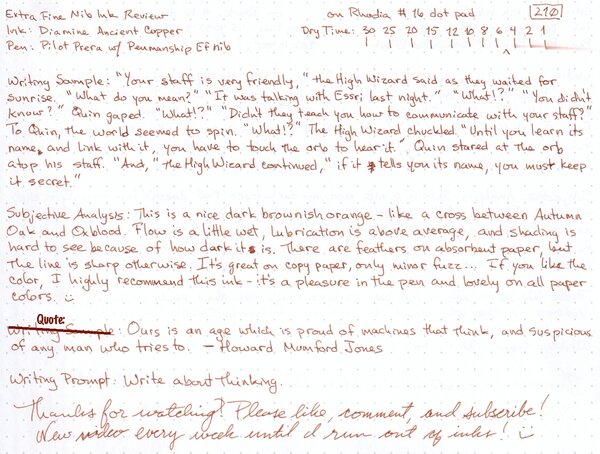 Extra Fine Nib Ink Review on Rhodia #16 dot pad 210
Ink: Diamine Ancient Copper Dry Time: 30 25 20 15 12 10 8 6 4 2 1
Pen: Pilot Prera w/ Penmanship EF nib
Writing Sample: "Your staff is very friendly," the High Wizard said as they waited for
sunrise. "What do you mean?" "It was talking with Essri last night." "What!?" "You didn't
know?" Quin gaped. "What!?" "Didn't they teach you how to communicate with your staff?"
To Quin, the world seemed to spin. "What!?" The High Wizard chuckled. "Until you learn its
name, and link with it, you have to touch the orb to hear it." Quin stared at the orb
atop his staff. "And," the High Wizard continued, "if it tells you its name, you must keep
it secret."
Subjective Analysis: This is a nice dark brownish orange - like a cross between Autumn
Oak and Oxblood. Flow is a little wet, lubrication is above average, and shading is
hard to see because of how dark it is. There are feathers on absorbent paper, but
the line is sharp otherwise. It's great on copy paper, only minor fuzz... If you like the
color, I highly recommend this ink - it's a pleasure in the pen and lovely on all paper
colors. :)
Quote:
Writing Sample: Ours is an age which is proud of machines that think, and suspicious
of any man who tries to. - Howard Mumford Jones
Writing Prompt: Write about thinking.
Thanks for watching! Please like, comment, and subscribe!
New video every week until I run out of inks! :)